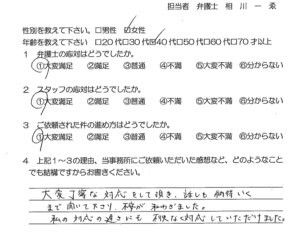 担当者 弁護士 相川一𠮷
性別を教えて下さい。□男性 □女性
年齢を教えて下さい □20代□30代□40代□50代□60代□70才以上
1 弁護士の応対はどうでしたか。
①大変満足 ②満足 ③普通 ④不満 ⑤大変不満 ⑥分からない
2 スタッフの応対はどうでしたか。
①大変満足 ②満足 ③普通 ④不満 ⑤大変不満 ⑥分からない
3 ご依頼された件の進め方はどうでしたか。
①大変満足 ②満足 ③普通 ④不満 ⑤大変不満 ⑥分からない
4 上記1~3の理由、当事務所にご依頼いただいた感想など、どのようなこと
でも結構ですからお書きください。
大変丁寧な対応をして頂き、話しも納得いく
まで聞いて下さり、
私の対応の遅さにも 快く対応していただけました。